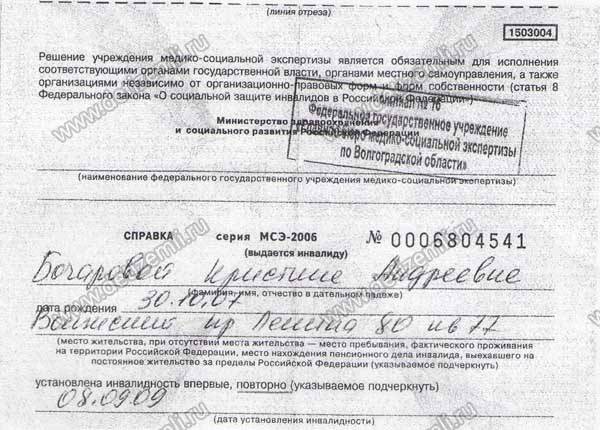 (линия отреза)
1503004
Решение учреждения медико-социальной экспертизы является обязательным для исполнения
соответствующими органами государственной власти, органами местного самоуправления, а также
организациями независимо от организационно-правовых форм и форм собственности (статья 8
Федерального закона «О социальной защите инвалидов в Российской Федерации»)
Министерство здравоохранения
и социального развития Российской Федерации
Филиал № 76
Федеральное государственное учреждение
«Главное бюро медико-социальной экспертизы
по Волгоградской области»
(наименование федерального государственного учреждения медико-социальной экспертизы)
СПРАВКА серия МСЭ-2006 № 0006804541
(выдается инвалиду)
Бочаровой Кристине Андреевне
(фамилия, имя, отчество в дательном падеже)
дата рождения 30.10.07
Волжский пр Ленина 80 кв 77
(место жительства, при отсутствии места жительства — место пребывания, фактического проживания
на территории Российской Федерации, место нахождения пенсионного дела инвалида, выехавшего на
постоянное жительство за пределы Российской Федерации (указываемое подчеркнуть)
установлена инвалидность впервые, повторно (указываемое подчеркнуть)
08.09.09
(дата установления инвалидности)
www.detizemli.ru